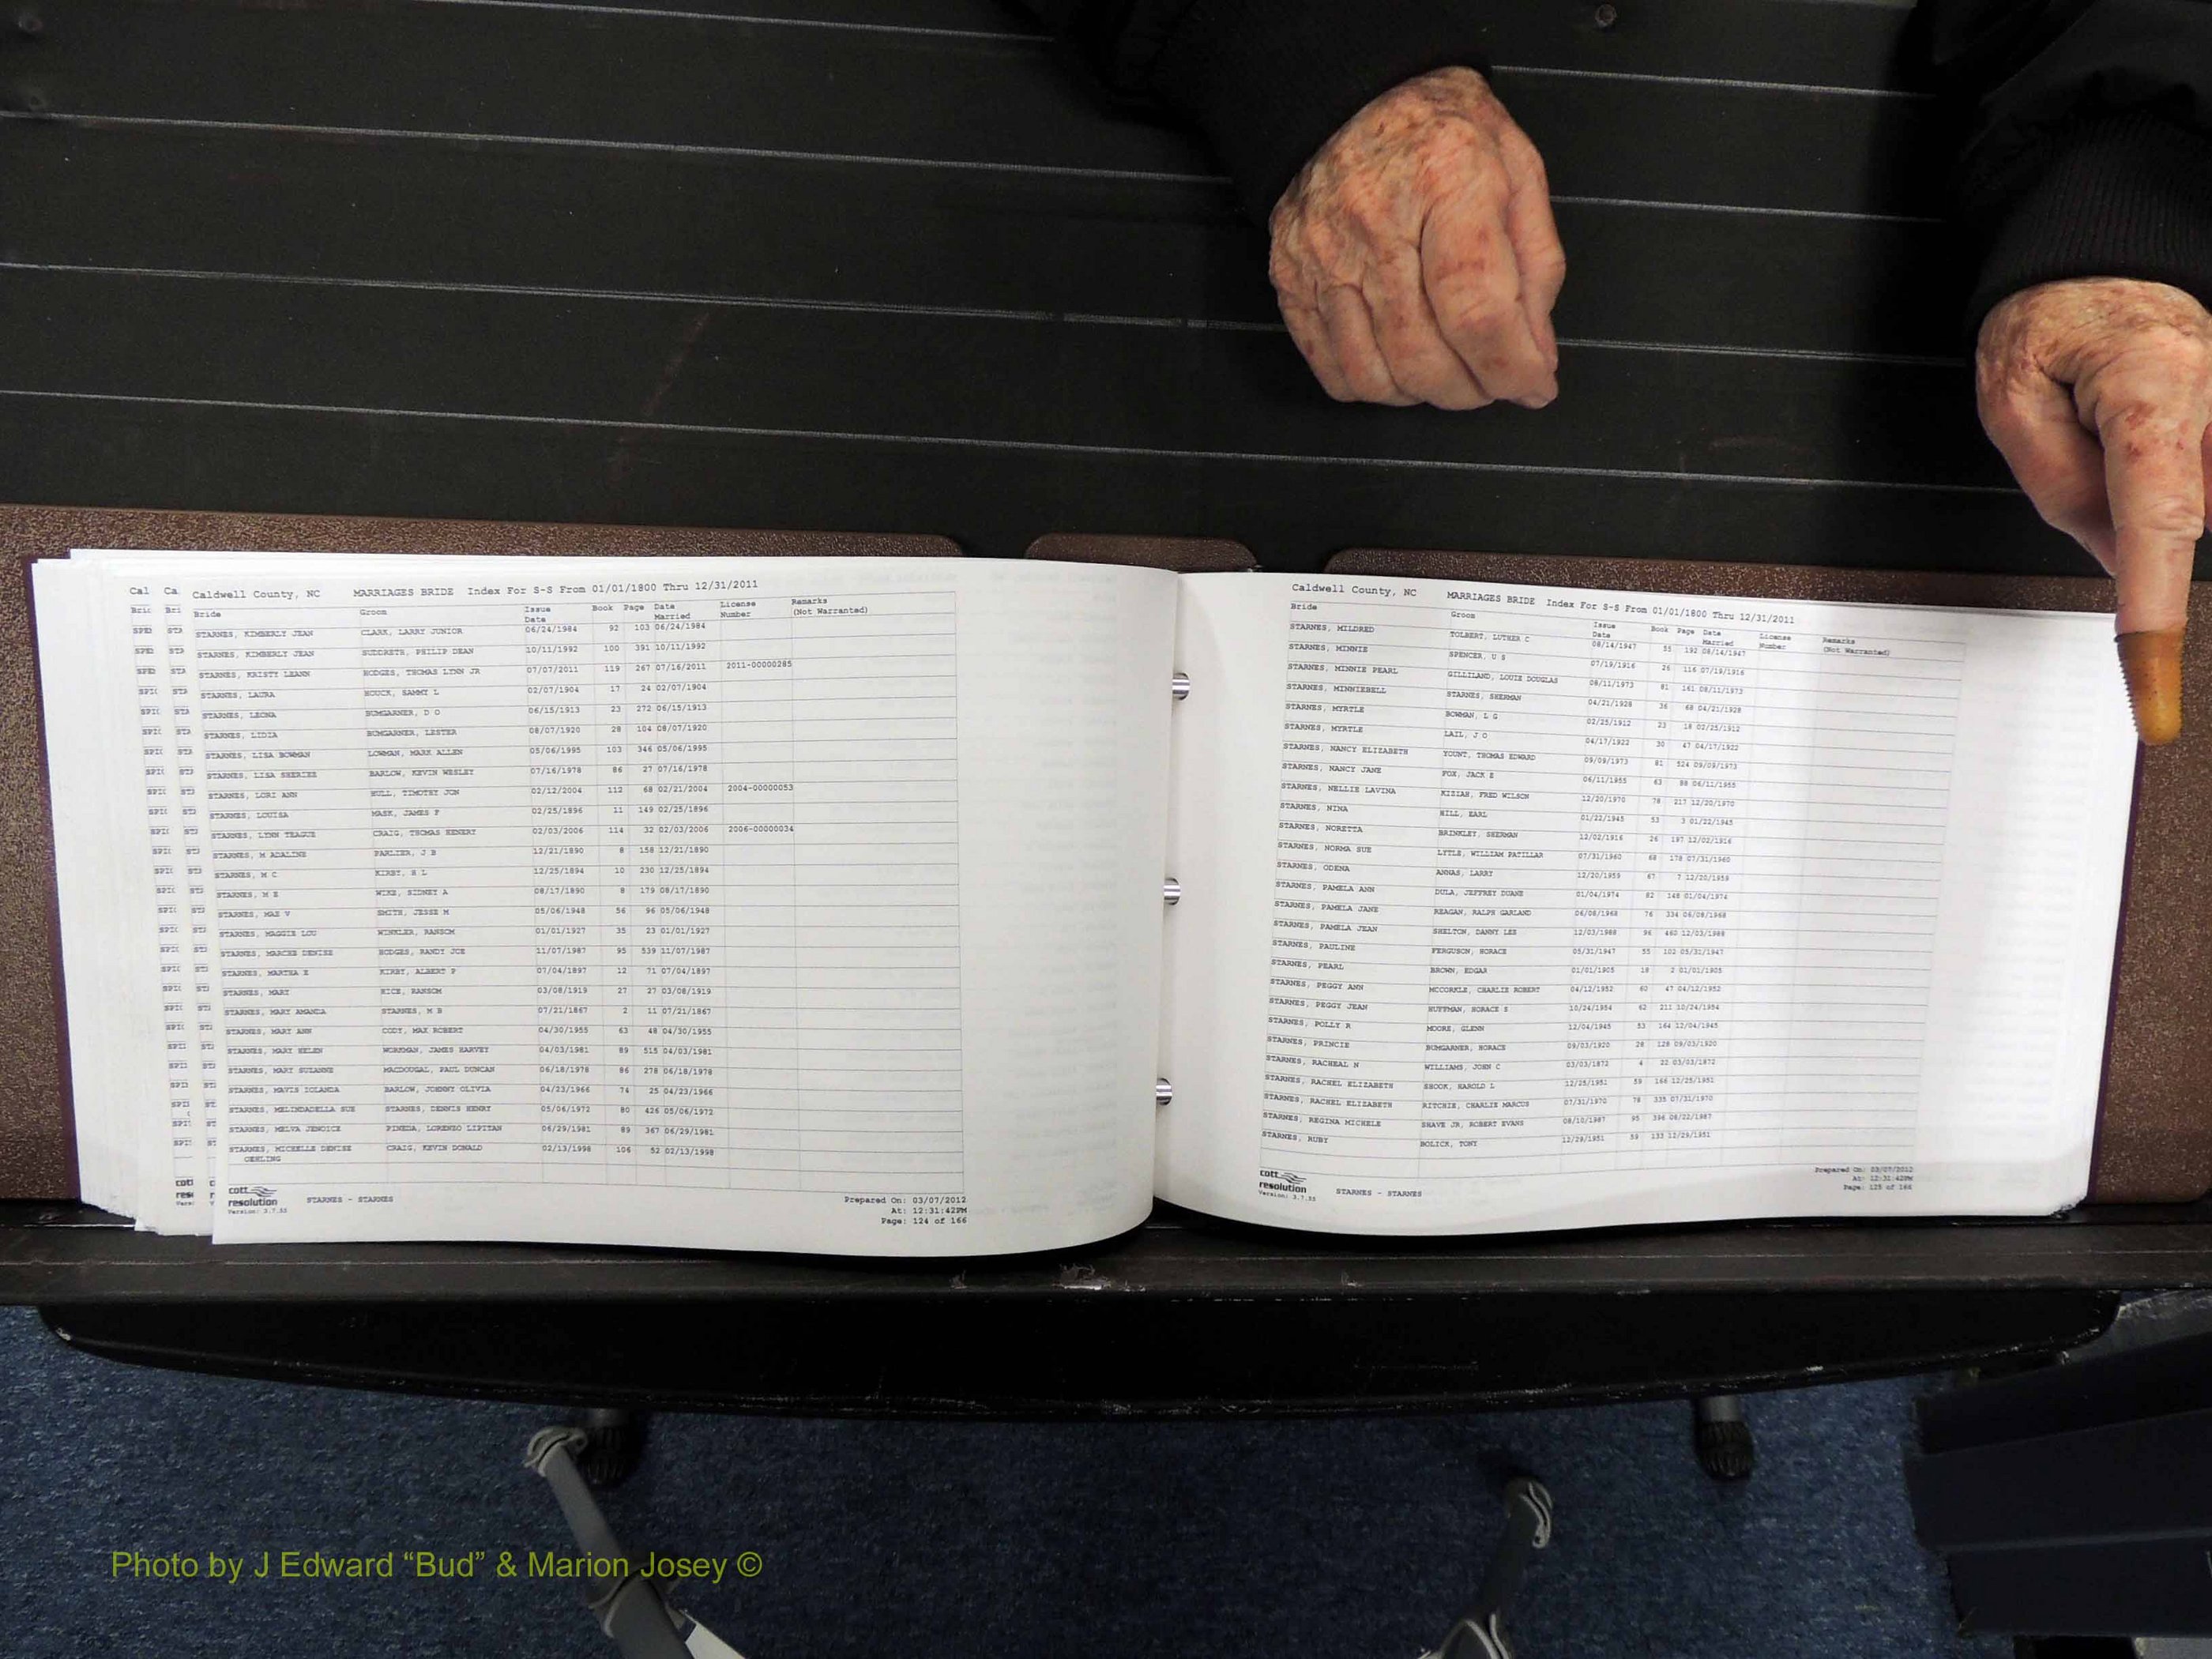 Caldwell County, NC MARRIAGES BRIDE Index For S-S From 01/01/1800 Thru 12/31/2011
Bride Groom Issue Date Book Page Date Married License Number Remarks (Not Warranted)
STARNES, KIMBERLY JEAN CLARK, LARRY JUNIOR 06/24/1984 92 103 06/24/1984
STARNES, KIMBERLY JEAN SUDDRETH, PHILIP DEAN 10/11/1992 100 391 10/11/1992
STARNES, KRISTY LEANN HODGES, THOMAS LYNN JR 07/07/2011 119 267 07/16/2011 2011-00000285
STARNES, LAURA HOUCK, SAMMY L 02/07/1904 17 24 02/07/1904
STARNES, LEONA BUMGARNER, D O 06/15/1913 23 272 06/15/1913
STARNES, LIDIA BUMGARNER, LESTER 08/07/1920 28 104 08/07/1920
STARNES, LISA BOWMAN LOWMAN, MARK ALLEN 05/06/1995 103 346 05/06/1995
STARNES, LISA SHERIEE BARLOW, KEVIN WESLEY 07/16/1978 86 27 07/16/1978
STARNES, LORI ANN HULL, TIMOTHY JON 02/12/2004 112 68 02/21/2004 2004-00000053
STARNES, LOUISA MASK, JAMES F 02/25/1896 11 149 02/25/1896
STARNES, LYNN TEAGUE CRAIG, THOMAS HENERY 02/03/2006 114 32 02/03/2006 2006-00000034
STARNES, M ADALINE PARLIER, J B 12/21/1890 8 158 12/21/1890
STARNES, M C KIRBY, H L 12/25/1894 10 230 12/25/1894
STARNES, M E WIKE, SIDNEY A 08/17/1890 8 179 08/17/1890
STARNES, MAE V SMITH, JESSE M 05/06/1948 56 96 05/06/1948
STARNES, MAGGIE LOU WINKLER, RANSOM 01/01/1927 35 23 01/01/1927
STARNES, MARCHE DENISE HODGES, RANDY JOE 11/07/1987 95 539 11/07/1987
STARNES, MARTHA E KIRBY, ALBERT P 07/04/1897 12 71 07/04/1897
STARNES, MARY RICE, RANSOM 03/08/1919 27 27 03/08/1919
STARNES, MARY AMANDA STARNES, M B 07/21/1867 2 11 07/21/1867
STARNES, MARY ANN CODY, MAX ROBERT 04/30/1955 63 48 04/30/1955
STARNES, MARY HELEN WORKMAN, JAMES HARVEY 04/03/1981 89 515 04/03/1981
STARNES, MARY SUZANNE MACDOUGAL, PAUL DUNCAN 06/18/1978 86 278 06/18/1978
STARNES, MAVIS IOLANDA BARLOW, JOHNNY OLIVIA 04/23/1966 74 25 04/23/1966
STARNES, MELINDADELLA SUE STARNES, DENNIS HENRY 05/06/1972 80 426 05/06/1972
STARNES, MELVA JENOICE PINEDA, LORENZO LIPITAN 06/29/1981 89 367 06/29/1981
STARNES, MICHELLE DENISE CRAIG, KEVIN DONALD 02/13/1998 106 52 02/13/1998
OEHLING
cott resolution Version: 3.7.55 STARNES - STARNES Prepared On: 03/07/2012
At: 12:31:42PM
Page: 124 of 166
Caldwell County, NC MARRIAGES BRIDE Index For S-S From 01/01/1800 Thru 12/31/2011
Bride Groom Issue Date Book Page Date Married License Number Remarks (Not Warranted)
STARNES, MILDRED TOLBERT, LUTHER C 08/14/1947 55 192 08/14/1947
STARNES, MINNIE SPENCER, U S 07/19/1916 26 116 07/19/1916
STARNES, MINNIE PEARL GILLILAND, LOUIE DOUGLAS 08/11/1973 81 161 08/11/1973
STARNES, MINNIEBELL STARNES, SHERMAN 04/21/1928 36 68 04/21/1928
STARNES, MYRTLE BOWMAN, L G 02/25/1912 23 18 02/25/1912
STARNES, MYRTLE LAIL, J O 04/17/1922 30 47 04/17/1922
STARNES, NANCY ELIZABETH YOUNT, THOMAS EDWARD 09/09/1973 81 524 09/09/1973
STARNES, NANCY JANE FOX, JACK E 06/11/1955 63 88 06/11/1955
STARNES, NELLIE LAVINA KIZIAH, FRED WILSON 12/20/1970 78 217 12/20/1970
STARNES, NINA HILL, EARL 01/22/1945 53 3 01/22/1945
STARNES, NORETTA BRINKLEY, SHERMAN 12/02/1916 26 197 12/02/1916
STARNES, NORMA SUE LYTLE, WILLIAM PATILLAR 07/31/1960 68 178 07/31/1960
STARNES, ODENA ANNAS, LARRY 12/20/1959 67 7 12/20/1959
STARNES, PAMELA ANN DULA, JEFFREY DUANE 01/04/1974 82 148 01/04/1974
STARNES, PAMELA JANE REAGAN, RALPH GARLAND 06/08/1968 76 334 06/08/1968
STARNES, PAMELA JEAN SHELTON, DANNY LEE 12/03/1988 96 460 12/03/1988
STARNES, PAULINE FERGUSON, HORACE 05/31/1947 55 102 05/31/1947
STARNES, PEARL BROWN, EDGAR 01/01/1905 18 2 01/01/1905
STARNES, PEGGY ANN MCCORKLE, CHARLIE ROBERT 04/12/1952 60 47 04/12/1952
STARNES, PEGGY JEAN HUFFMAN, HORACE S 10/24/1954 62 211 10/24/1954
STARNES, POLLY R MOORE, GLENN 12/04/1945 53 164 12/04/1945
STARNES, PRINCIE BUMGARNER, HORACE 09/03/1920 28 128 09/03/1920
STARNES, RACHEAL N WILLIAMS, JOHN C 03/03/1872 4 22 03/03/1872
STARNES, RACHEL ELIZABETH SHOOK, HAROLD L 12/25/1951 59 168 12/25/1951
STARNES, RACHEL ELIZABETH RITCHIE, CHARLIE MARCUS 07/31/1970 78 335 07/31/1970
STARNES, REGINA MICHELE SHAVE JR, ROBERT EVANS 08/10/1987 95 396 08/22/1987
STARNES, RUBY BOLICK, TONY 12/29/1951 59 133 12/29/1951
cott resolution Version: 3.7.55 STARNES - STARNES Prepared On: 03/07/2012
At: 12:31:42PM
Page: 125 of 166
Photo by J Edward “Bud” & Marion Josey ©